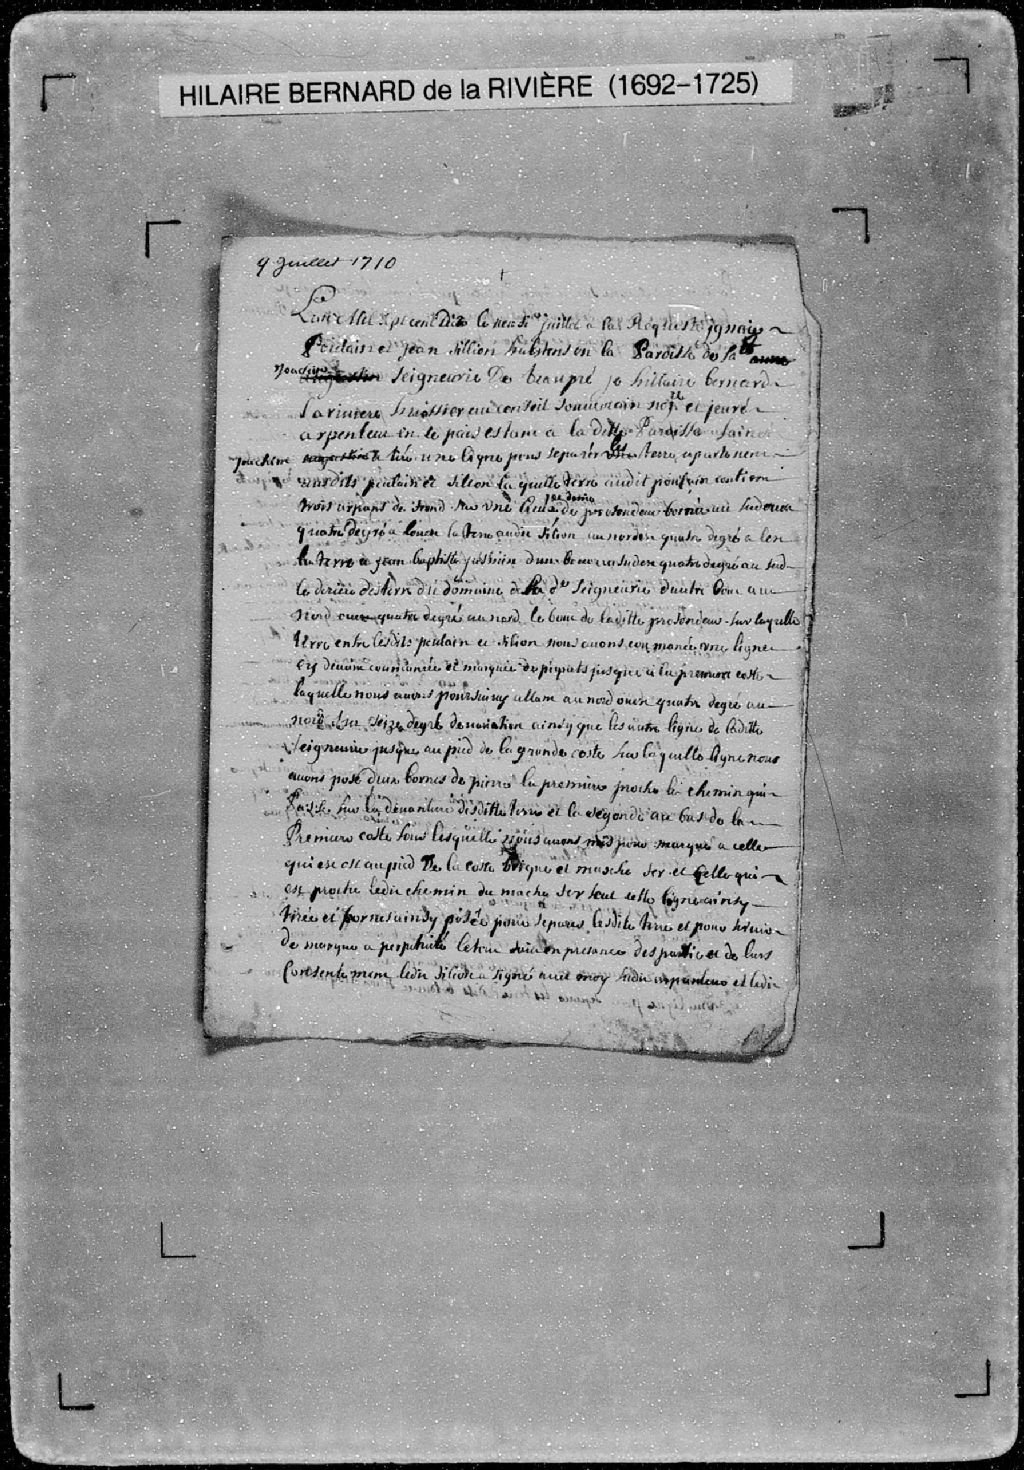 HILAIRE BERNARD de la RIVIÈRE (1692–1725)
9 Juillet 1710
Lan Mil Sept cent Dix le neuf juillet a la Requeste jgnaise
Poulain et jean Silion habitens en la Paroisse de St
Joachim Seigneurie De beaupré je hillaire bernard
Lariviere huissier au conseil Souuerain nore et jeuré
arpenteur en se païs estant a la ditte Paroisse Sainct
Joachim a tiré une ligne pour separer les terre apartenent
ausdits poulain et Silion la quelle terre audit poulain contien
trois arpans de frond sur une lieue et demie de profondeur bornée au Sudouest
quatre degré a louest la terre audit Silion au nordest quatre degré a lest
la terre a jean baptiste dun bout au Sudest quatre degré au Sud
le derière des terre du domaine de la de Seigneurie dautre bout au
nord ouest quatre degré au nord le bout de laditte profondeur Sur laquelle
terre entre lesdits poulain et Silion nous auons commancé une ligne
cy deuant commancée et marquée de piquets jusque a la premiere coste
laquelle nous auons poursuiuy allant au nord ouest quatre degré au
nord Sur Seize degré de uariation ainsy que les autre ligne de laditte
Seigneurie jusque au pied de la grande coste Sur laquelle ligne nous
auons posé deux bornes de pierre la premiere proche le chemin qui
Passe Sur la deuanture desditte terre et la Segonde au bas de la
Premiere coste Sous lesquelle nous auons mis pour marque a celle
qui est au pied De la coste brique et mache fer et Celle qui
est proche ledit chemin du mache fer Seul cette ligne ainsy
tirée et bornes ainsy posée pour separer lesdite terre et pour Seruir
de marque a perpetuité le tout fait en presance des partie et de leurs
Consentement ledit Silion a Signé auec moy Sudit arpanteur et ledit